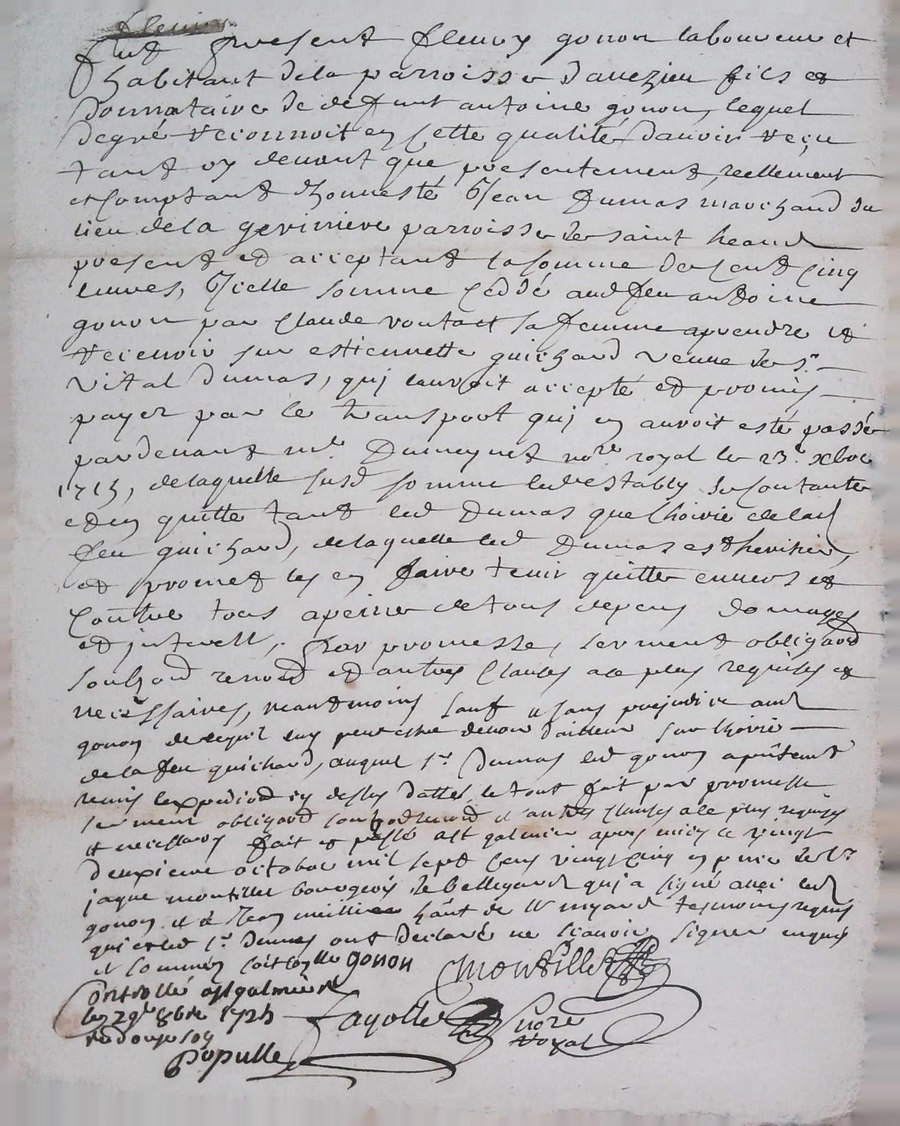 fleury
fut present fleury gonon laboureur et
habitant dela parroisse daveizieu fils et
donnataire de deffunt antoine gonon, lequel
degré reconnoit en cette qualité davoir reçu
tant cy devant que presentement, reellement
et comptant dhonnesté Sr Jean Dumas marchand du
lieu de la geviriniere parroisse de saint heand
present et acceptant la somme de cent cinq
livres, Icelle somme ceddé aud feu antoine
gonon par Claude sa femme aprendre et
recevoir sur estiennette guichard veuve de sr
vital dumas, qui lauroit accepté et promis
payer par le transport qui en auroit esté passé
pardevant me Dumeynet nore royal le 23e xbre
1713, de laquelle susd somme led estably se contante
et en quitte tant led Dumas que lhoirie de lad
feu guichard, de laquelle led Dumas est heritier,
et promet les en faire tenir quitte envers et
contre tous apeine de tous depens domages
et interests, par promesse, serment obligaon
soubzon renoon et autres clauses ace plus requises et
necessaires, neantmoins sauf et sans prejudice aud
gonon de ce quil luy peut estre devoir dailleur sur lhoirie
de la feu guichard, auquel sr Dumas led gonon a presentemt
remis lexpedion cy dessus dattée, le tout fait par promesse
serment obligaon soubzon renon et autres clauses ace plus requises
et necessaires fait et passé a st galmier apres midy ce vingt
deuxieme octobre mil sept cens vingt cinq en pnce de sr
jaque montillet bourgeois de bellegarde qui a signé avec led
gonon, et de hant de tesmoins requis
qui et led sr Dumas ont declaré ne scavoir signer enquis
et sommez gonon Montillet
Controllé a st galmier
le 29e 8bre 1725 fayolle nore
rec douze sols royal
Populle